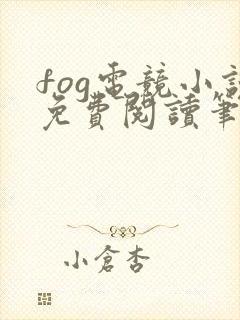 fog電競小說
免費閱讀筆
小倉杏